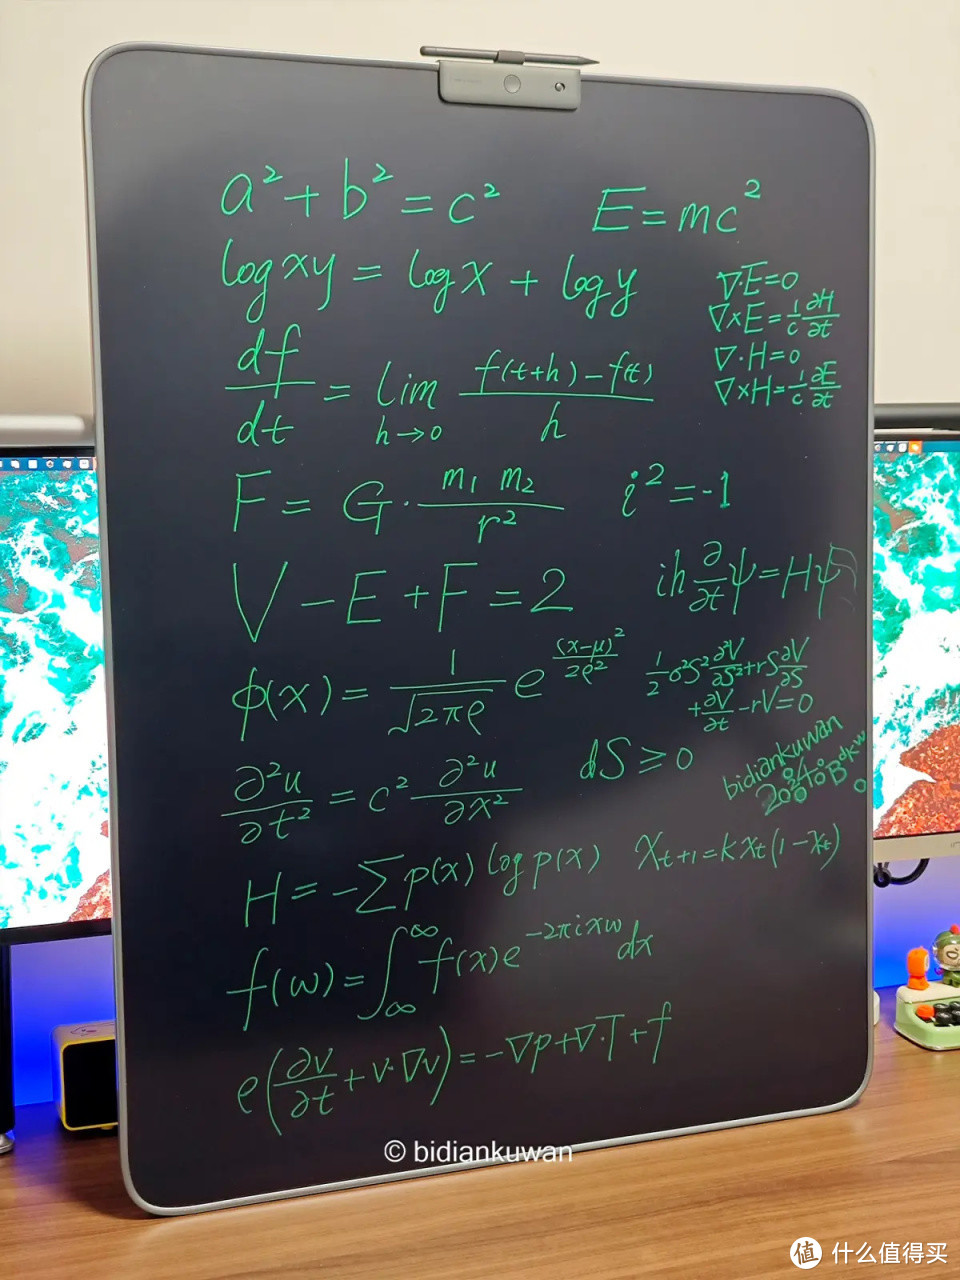 a² + b² = c²
E = mc²
log xy = log x + log y
∇·E=0
∇×E=1/c ∂H/∂t
∇·H=0
∇×H=1/c ∂E/∂t
df/dt = lim h→0 f(t+h)-f(t)/h
F = G · m₁ m₂/r²
i² = -1
V - E + F = 2
ih ∂/∂t ψ = Hψ
ϕ(x) = 1/√2πρ e (x-μ)²/2ρ²
1/2 σ²S² ∂²V/∂S² + rS ∂V/∂S
+ ∂V/∂t - rV = 0
∂²u/∂t² = c² ∂²u/∂x²
dS ≥ 0
bidiankuwan
H = -∑ p(x) log p(x)
Xt+1 = k Xt (1-Xt)
f(w) = ∫∞ ∞ f(x) e^-2πixw dx
ρ(∂v/∂t + v·∇v) = -∇p + ∇·T + f
© bidiankuwan
值 什么值得买